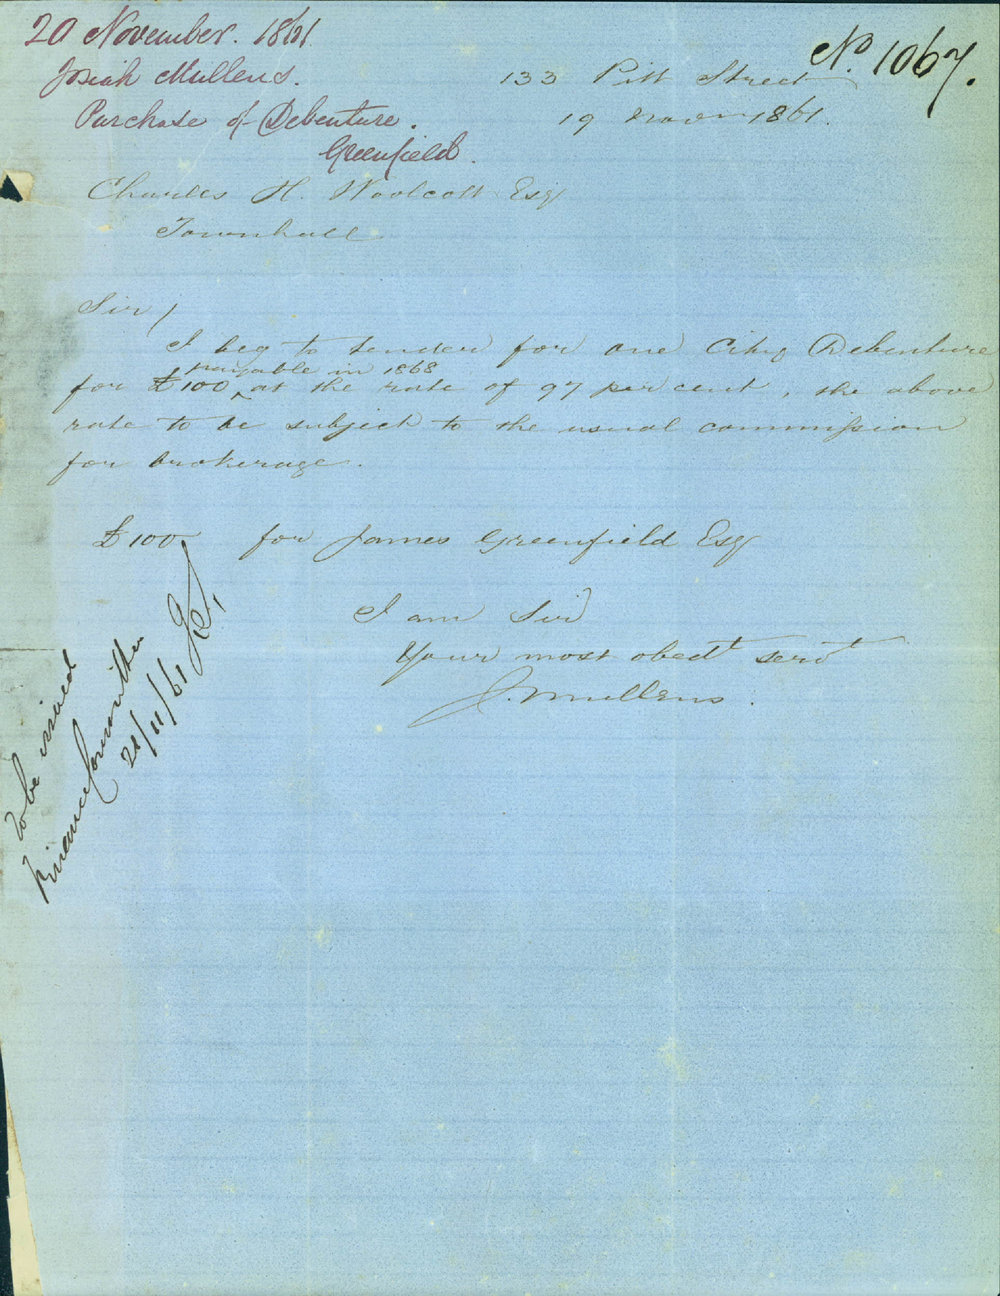 20 November. 1861
Josiah Mullens.
Purchase of Debenture.
Greenfield.
No. 1067.
133 Pitt Street
19 Novr 1861.
Charles H. Woolcott Esqr
Townhall
Sir/
I beg to tender for one City Debenture
for £100 ‸ payable in 1868 at the rate of 97 per cent, the above
rate to be subject to the usual commission
for brokerage.
£100 for James Greenfield Esqr
I am Sir
Your most obedt servt
J. Mullens.
To be issued
Finance Committee
21/11/61